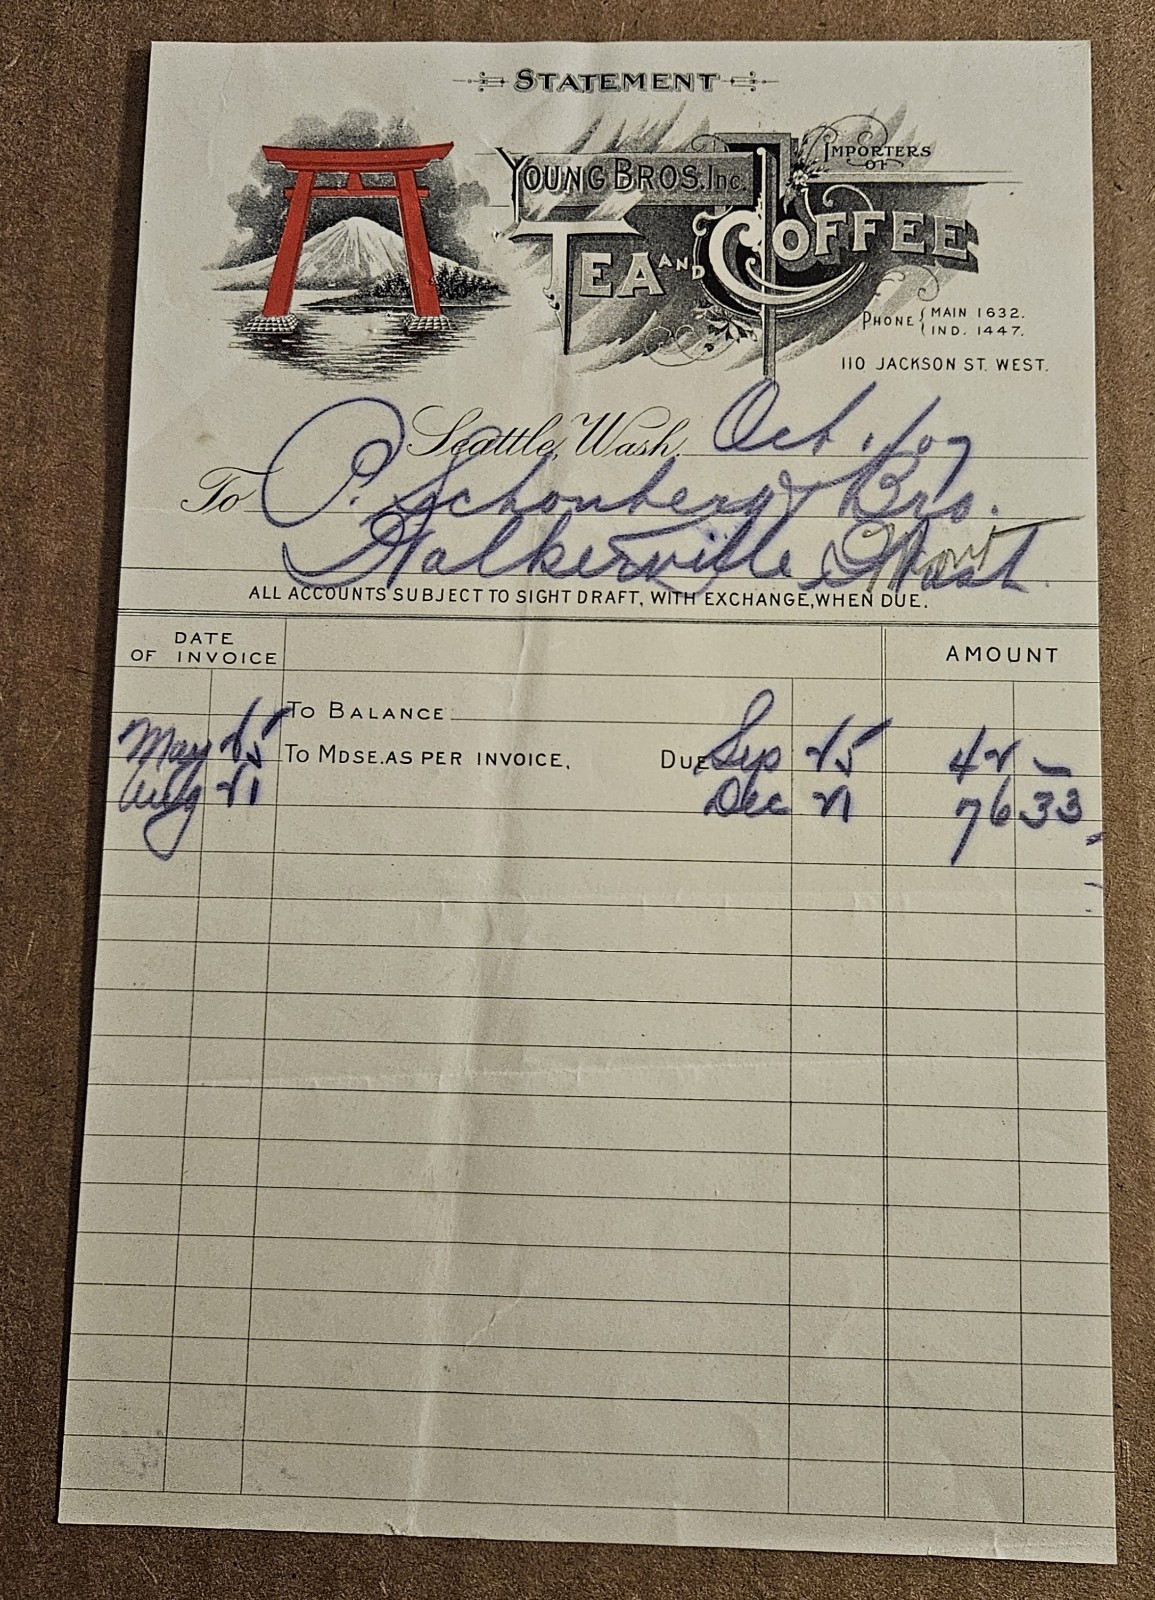 STATEMENT
YOUNG BROS. Inc.
IMPORTERS
OF
TEA AND COFFEE
PHONE { MAIN 1632.
IND. 1447.
110 JACKSON ST. WEST.
Seattle, Wash. Oct. 1, 07
To P. Schonberg & Bro.
Walkerville Mont
ALL ACCOUNTS SUBJECT TO SIGHT DRAFT, WITH EXCHANGE, WHEN DUE.
DATE
OF INVOICE
AMOUNT
TO BALANCE
May 25 TO MDSE. AS PER INVOICE, DUE Sep 25 42 —
Aug 21 Dec 21 76 33